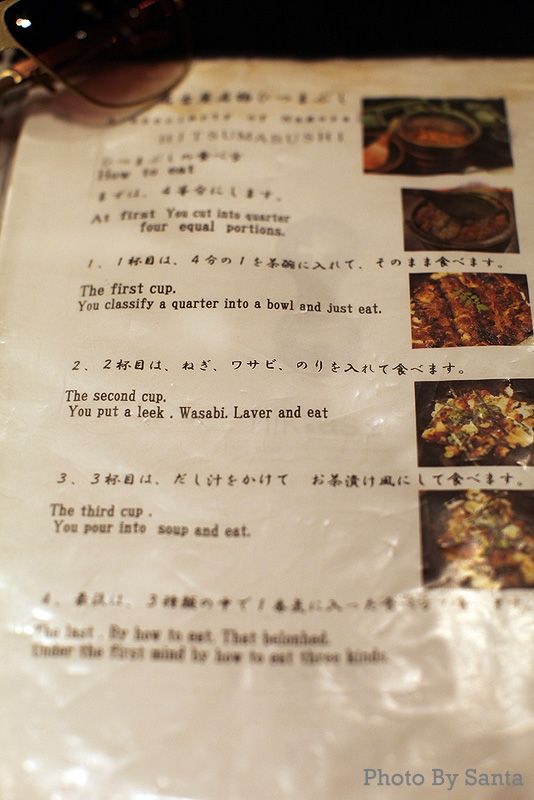 ひつまぶし
HITSUMABUSHI
ひつまぶしの食べ方
How to eat
まずは、4等分にします。
At first You cut into quarter
four equal portions.
1、1杯目は、4分の1を茶碗に入れて、そのまま食べます。
The first cup.
You classify a quarter into a bowl and just eat.
2、2杯目は、ねぎ、ワサビ、のりを入れて食べます。
The second cup.
You put a leek . Wasabi. Laver and eat
3、3杯目は、だし汁をかけて お茶漬け風にして食べます。
The third cup .
You pour into soup and eat.
4、最後は、3種類の中で1番気に入った
The last . By how to eat. That
Under the first mind by how to eat three kinds.
Photo By Santa